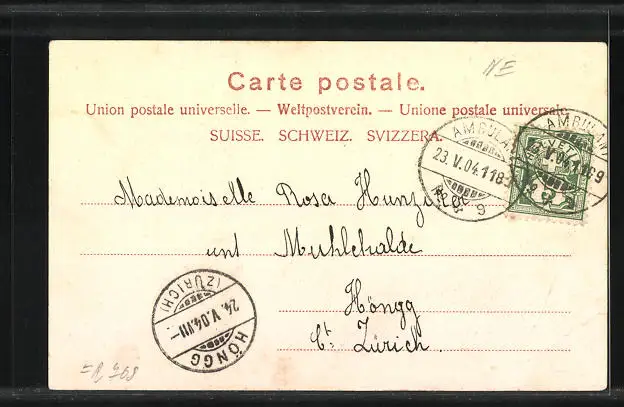 NE
Carte postale.
Union postale universelle. — Weltpostverein. — Unione postale universale.
SUISSE. SCHWEIZ. SVIZZERA.
AMBULANT
23.V.04.118
9
AMBULANT
23.V.04.118
9
HELVETIA
Mademoiselle Rosa Hunziker
unt Muhlehalde
Höngg
Ct. Zürich.
(ZÜRICH)
24.V.04.VII-
HÖNGG